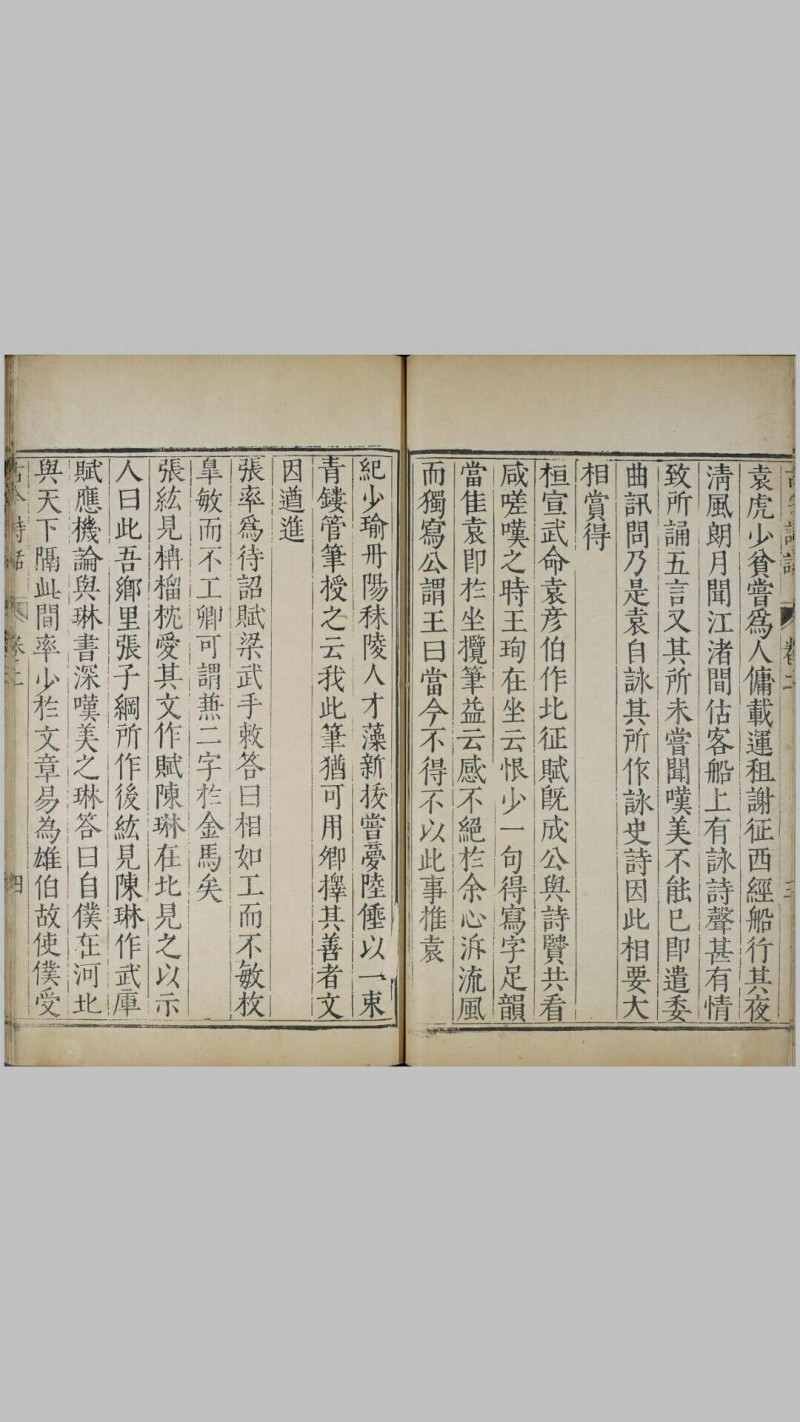 袁虎少貧嘗爲人傭載運租謝征西經船行其夜
淸風朗月聞江渚間估客船上有詠詩聲甚有情
致所誦五言又其所未嘗聞嘆美不能已即遣委
曲訊問乃是袁自詠其所作詠史詩因此相要大
相賞得
桓宣武命袁彦伯作北征賦旣成公與詩賢共看
咸嗟嘆之時王珣在坐云恨少一句得寫字足韻
當佳袁即於坐攬筆益云感不絕於余心泝流風
而獨寫公謂王曰當今不得不以此事推袁
紀少瑜丹陽秣陵人才藻新拔嘗夢陸倕以一束
青鏤管筆授之云我此筆猶可用卿擇其善者文
因遒進
張率爲待詔賦梁武手敕答曰相如工而不敏枚
皐敏而不工卿可謂兼二字於金馬矣
張紘見柟榴枕愛其文作賦陳琳在北見之以示
人曰此吾鄉里張子綱所作後紘見陳琳作武庫
賦應機論與琳書深嘆美之琳答曰自僕在河北
與天下隔此間率少於文章易為雄伯故使僕受
古今詩話 卷之二 四